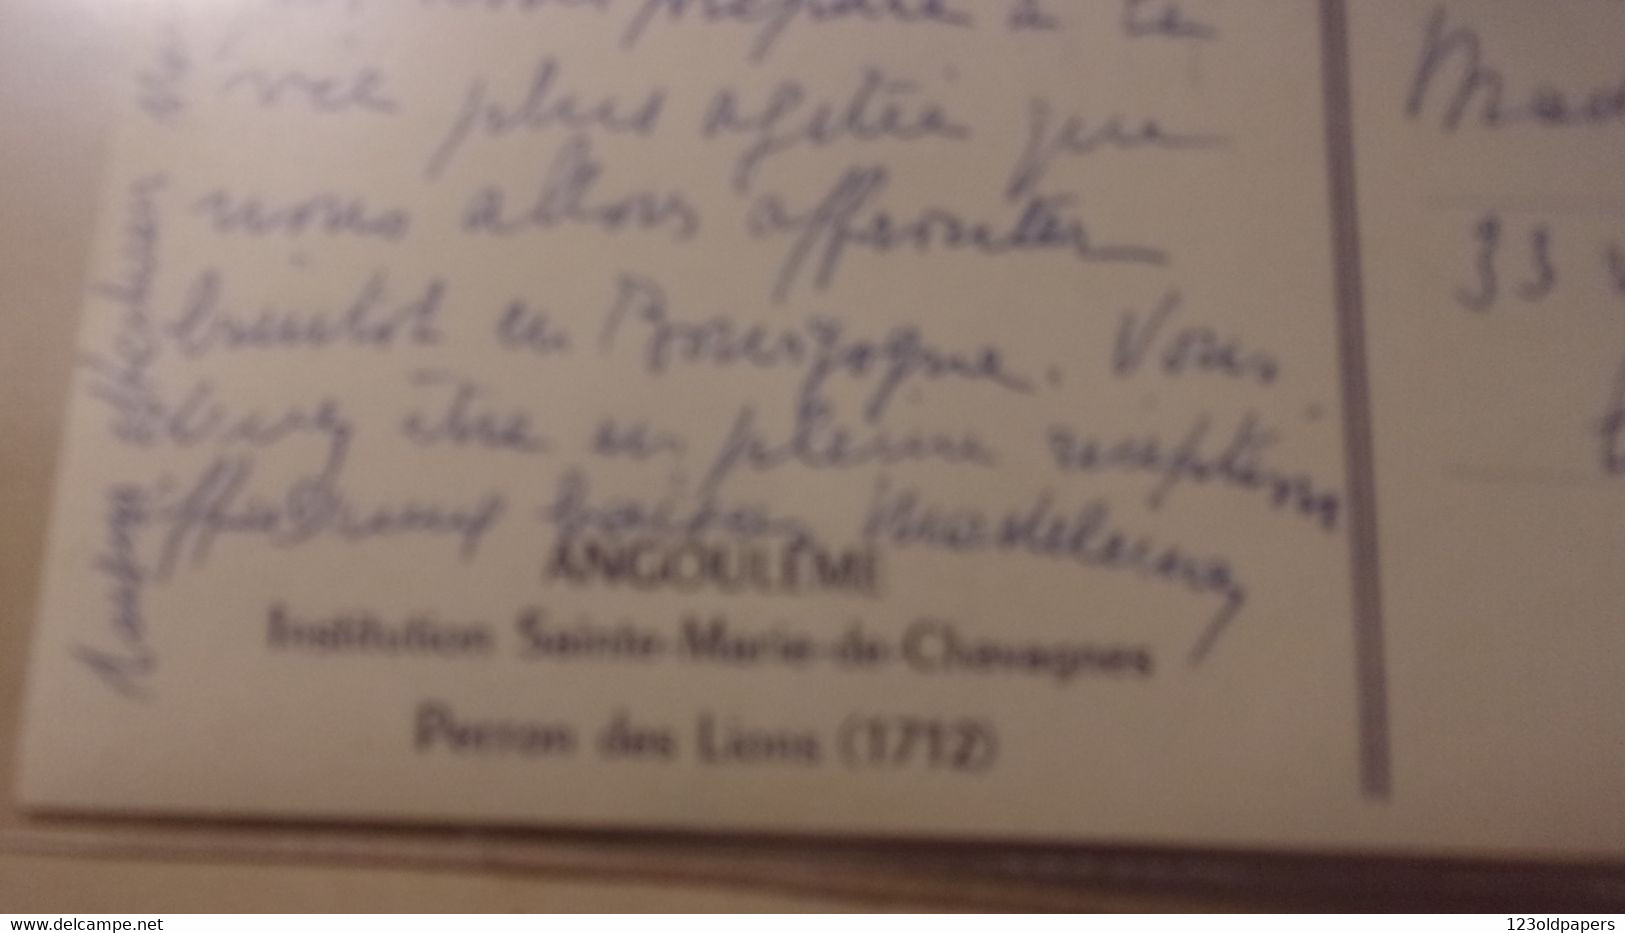 prépare à la
vie plus agitée que
nous allons affronter
bientôt en Bourgogne. Vous
devez être en pleine réception
Affectueux baisers Madeleine
ANGOULÊME
Institution Sainte-Marie-de-Chavagnes
Perron des Lions (1712)
Mad
33
www.delcampe.net
123oldpapers